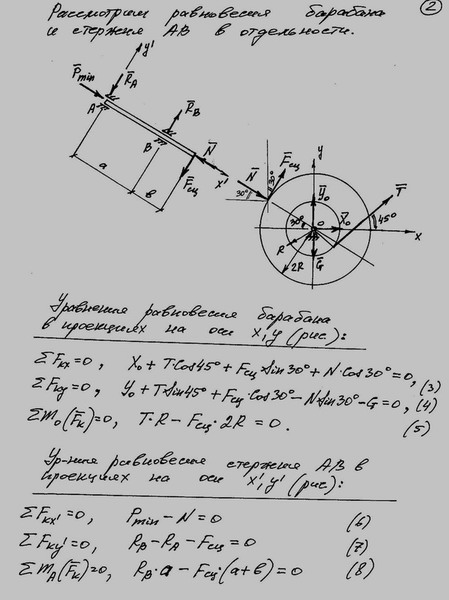 2
Рассмотрим равновесия барабана
и стержня AB в отдельности.
y'
P̄min
R̄A
A
R̄B
B
N̄
a
в
F̄сц
x'
y
N̄
F̄сц
30°
30°
Ȳo
T̄
X̄o
O
30°
45°
x
R
2R
Ḡ
Уравнения равновесия барабана
в проекциях на оси x,y (рис.):
ΣFkx=0, Xo + T·Cos45° + Fсц Sin30° + N·Cos30° = 0, (3)
ΣFky=0, Yo + T Sin45° + Fсц·Cos30° - N Sin30° - G = 0, (4)
Σmo(F̄k)=0, T·R - Fсц·2R = 0. (5)
Ур-ния равновесия стержня AB в
проекциях на оси x',y' (рис):
ΣFkx'=0, Pmin - N = 0 (6)
ΣFky'=0, RB - RA - Fсц = 0 (7)
ΣmA(F̄k)=0, RB·a - Fсц·(a+в) = 0 (8)